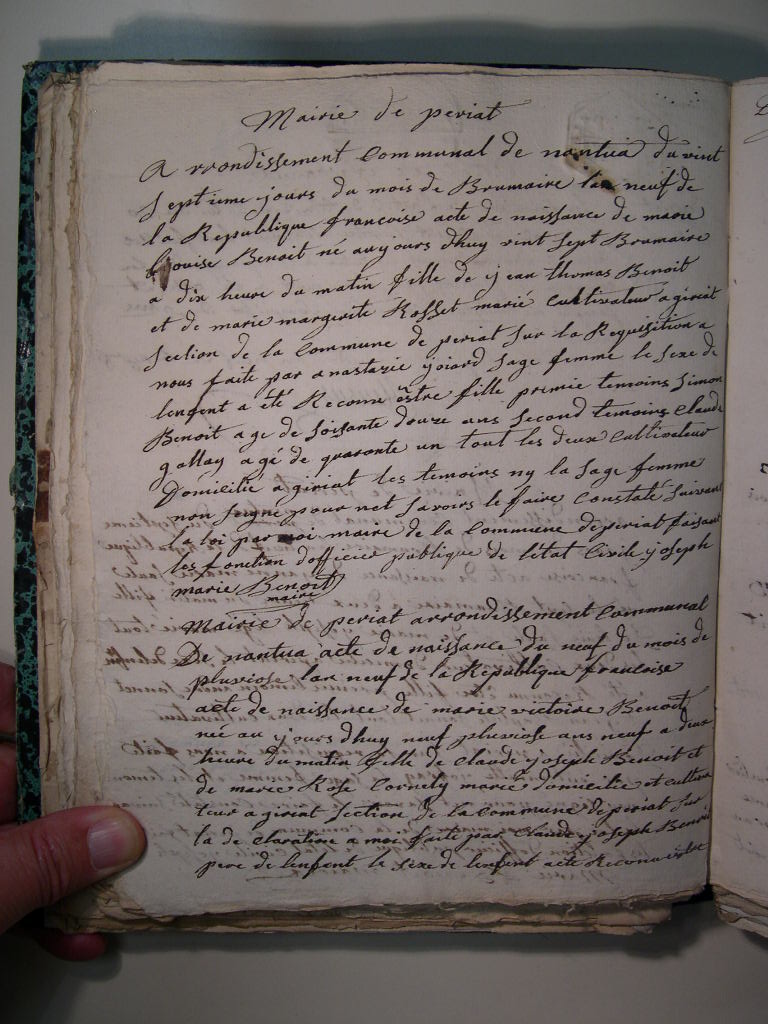 Mairie de periat
Arrondissement Communal de nantua du vint
septieme jours du mois de Brumaire lan neuf de
la Republique francoise acte de naissance de marie
Louise Benoit né aujours dhuy vint sept Brumaire
a dix heure du matin fille de jean thomas Benoit
et de marie margerite Rosset marié Cultivateur a giriat
section de la Commune de periat sur la Requisition a
nous faite par anastazie joiard sage femme le sexe de
lenfent a été Reconu estre fille premie temoins Simon
Benoit age de soisante douze ans second temoins Claude
gallay agé de quaronte un tout les deux Cultivateur
Domicilié a giriat les temoins ny la sage femme
non signe pour net savoirs le faire Constaté suivant
la loi par moi maire de la Commune de periat faisant
les fonction dofficier publique de letat Civile joseph
marie Benoit
maire
Mairie de periat arrondissement Communal
De nantua acte de naissance du neuf du mois de
pluviose lan neuf de la Republique francoise
acte de naissance de marie victoire Benoit
né au jours dhuy neuf pluviose ans neuf a deux
heure du matin fille de Claude joseph Benoit et
de marie Rose Cornely marié domicilie et cultiva
teur a giriat section de la Commune de periat sur
la de claration a moi faite par Claude joseph Benoit
pere de lenfent le sexe de lenfent acte Reconu estre